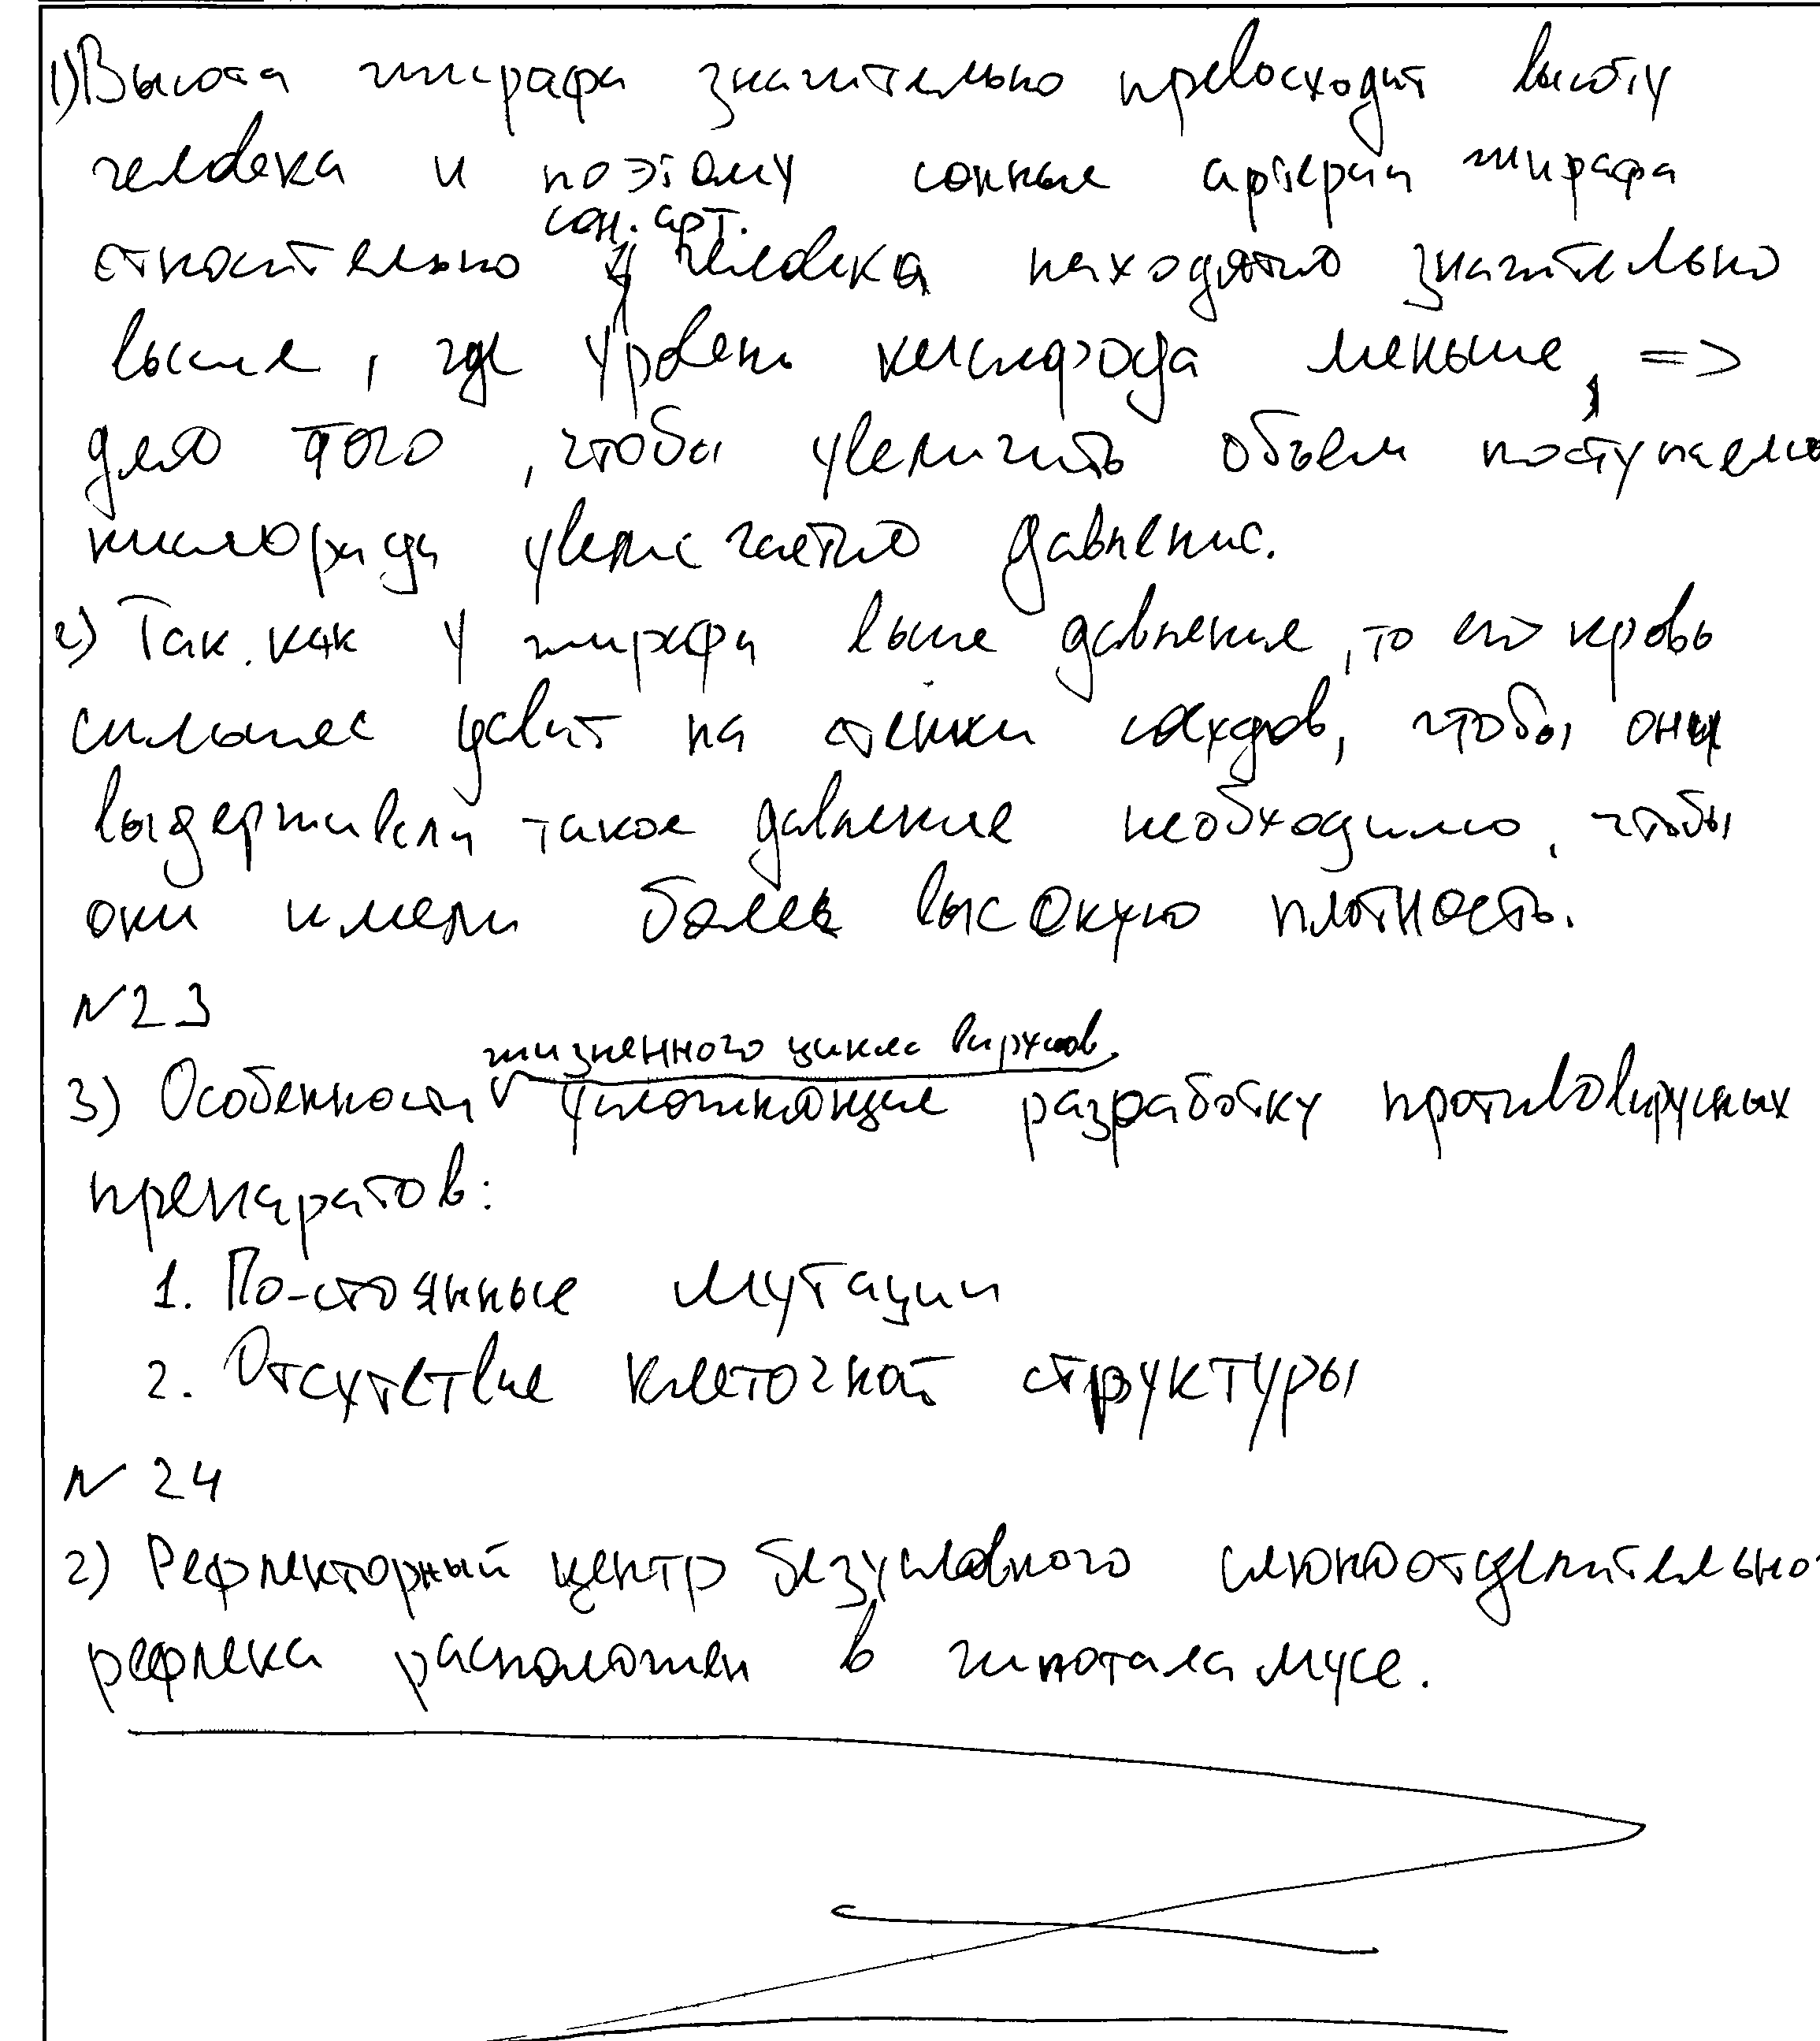 1) Высота жирафа значительно превосходит высоту
человека и поэтому сонные артерии жирафа
сон. арт.
относительно человека находятся значительно
выше, где уровень кислорода меньше, =>
для того, чтобы увеличить объем поступаемо
кислорода увеличается давление.
2) Так как у жирафа выше давление, то его кровь
сильнее давит на стенки сосудов, чтобы они
выдерживали такое давление необходимо, чтобы
они имели более высокую плотность.
№23
жизненного цикла вирусов
3) Особенности усложняющие разработку противовирусных
препаратов:
1. По-стоянные мутации
2. Отсутствие клеточной структуры
№ 24
2) Рефлекторный центр безусловного слюноотделительно
рефлека расположен в гипоталамусе.